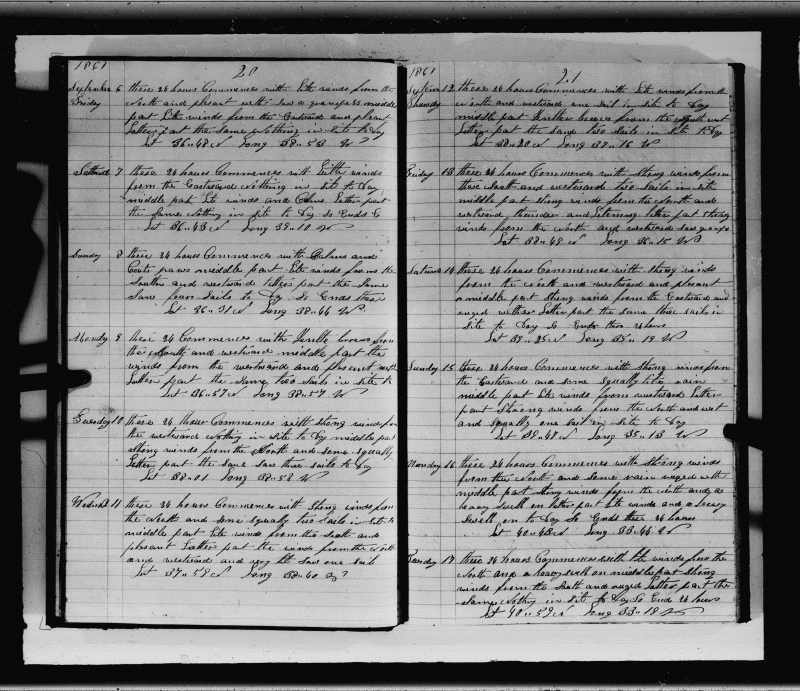 1861
20
September 6 these 24 hours Commences with Lite winds from the
Friday North and plesant with saw a grampuses middle
part Lite winds from the Eastward and plesant
Latter part the same nothing in site to Day
Lat 36..48 N Long 38..53 W
7 these 24 hours Commences with Lite winds
from the Eastward nothing in site to Day
middle part Lite winds and Calms Latter part
the same nothing in site to Day So Ends
Lat 36..43 N Long 39..10 W
Sunday 8 these 24 hours Commences with Calms and
Cats paws middle part Lite winds from the
South and westward Latter part the same
Saw four Sails to Day So Ends these
Lat 36..31 N Long 38..44 W
Monday 9 these 24 Commences with Gentle breses from
the South and westward middle part the
winds from the westward and plesent
Latter part the same two Sails in site to
Lat 36..57 N Long 38..57 W
Tuesday 10 these 24 hours Commences with strong winds from
the westward nothing in site to Day middle part
strong winds from the North and some squally
Latter part the same saw three sails to Day
Lat 38..01 Long 38..52 W
11 these 24 hours Commences with strong winds from
the North and some squally two Sails in site to
middle part Lite winds from the South and
plesant Latter part the winds from the North
and westward and very Lit Saw one Sail
Lat 37..58 N Long 38..40 W
1861
21
12 these 24 hours Commences with Lite winds from the
North and westward one Sail in site to Day
middle part Gentler breses from the South wat
Latter part the same two Sails in site to Day
Lat 38..20 N Long 37..16 W
Friday 13 these 24 hours Commences with Strong winds from
these North and westward two Sails in site
middle part strong winds from the North and
westward thunder and litening later part strong
winds from the North and westward saw
Lat 38..49 N Long 36..15 W
14 these 24 hours Commences with strong winds
from the North and westward and plesent
middle part strong winds from the Eastward and
ruged wether Latter part the same three sails in
Site to Day So Ends thes 24 hours
Lat 39..25 N Long 35..19 W
Sunday 15 these 24 hours Commences with strong winds from
the Eastward and some squally Lite rain
middle part Lite winds from westward Latter
part Strong winds from the North and west
and squally one Sail in site to Day
Lat 39..48 N Long 35..13 W
Monday 16 these 24 hours Commences with Strong winds
from the North and Some rain ruged with
middle part strong winds from the North and a
heavy Swell on latter part Lite winds and a heavy
Swell on to Day So Ends these 24 hours
Lat 40..43 N Long 33..44 W
17 these 24 hours Commences with Lite winds from the
North and a heavy swell on middle part strong
winds from the South and ruged Latter part the
same nothing in site to Day So End 24 hours
Lat 40..59 N Long 33..19 W